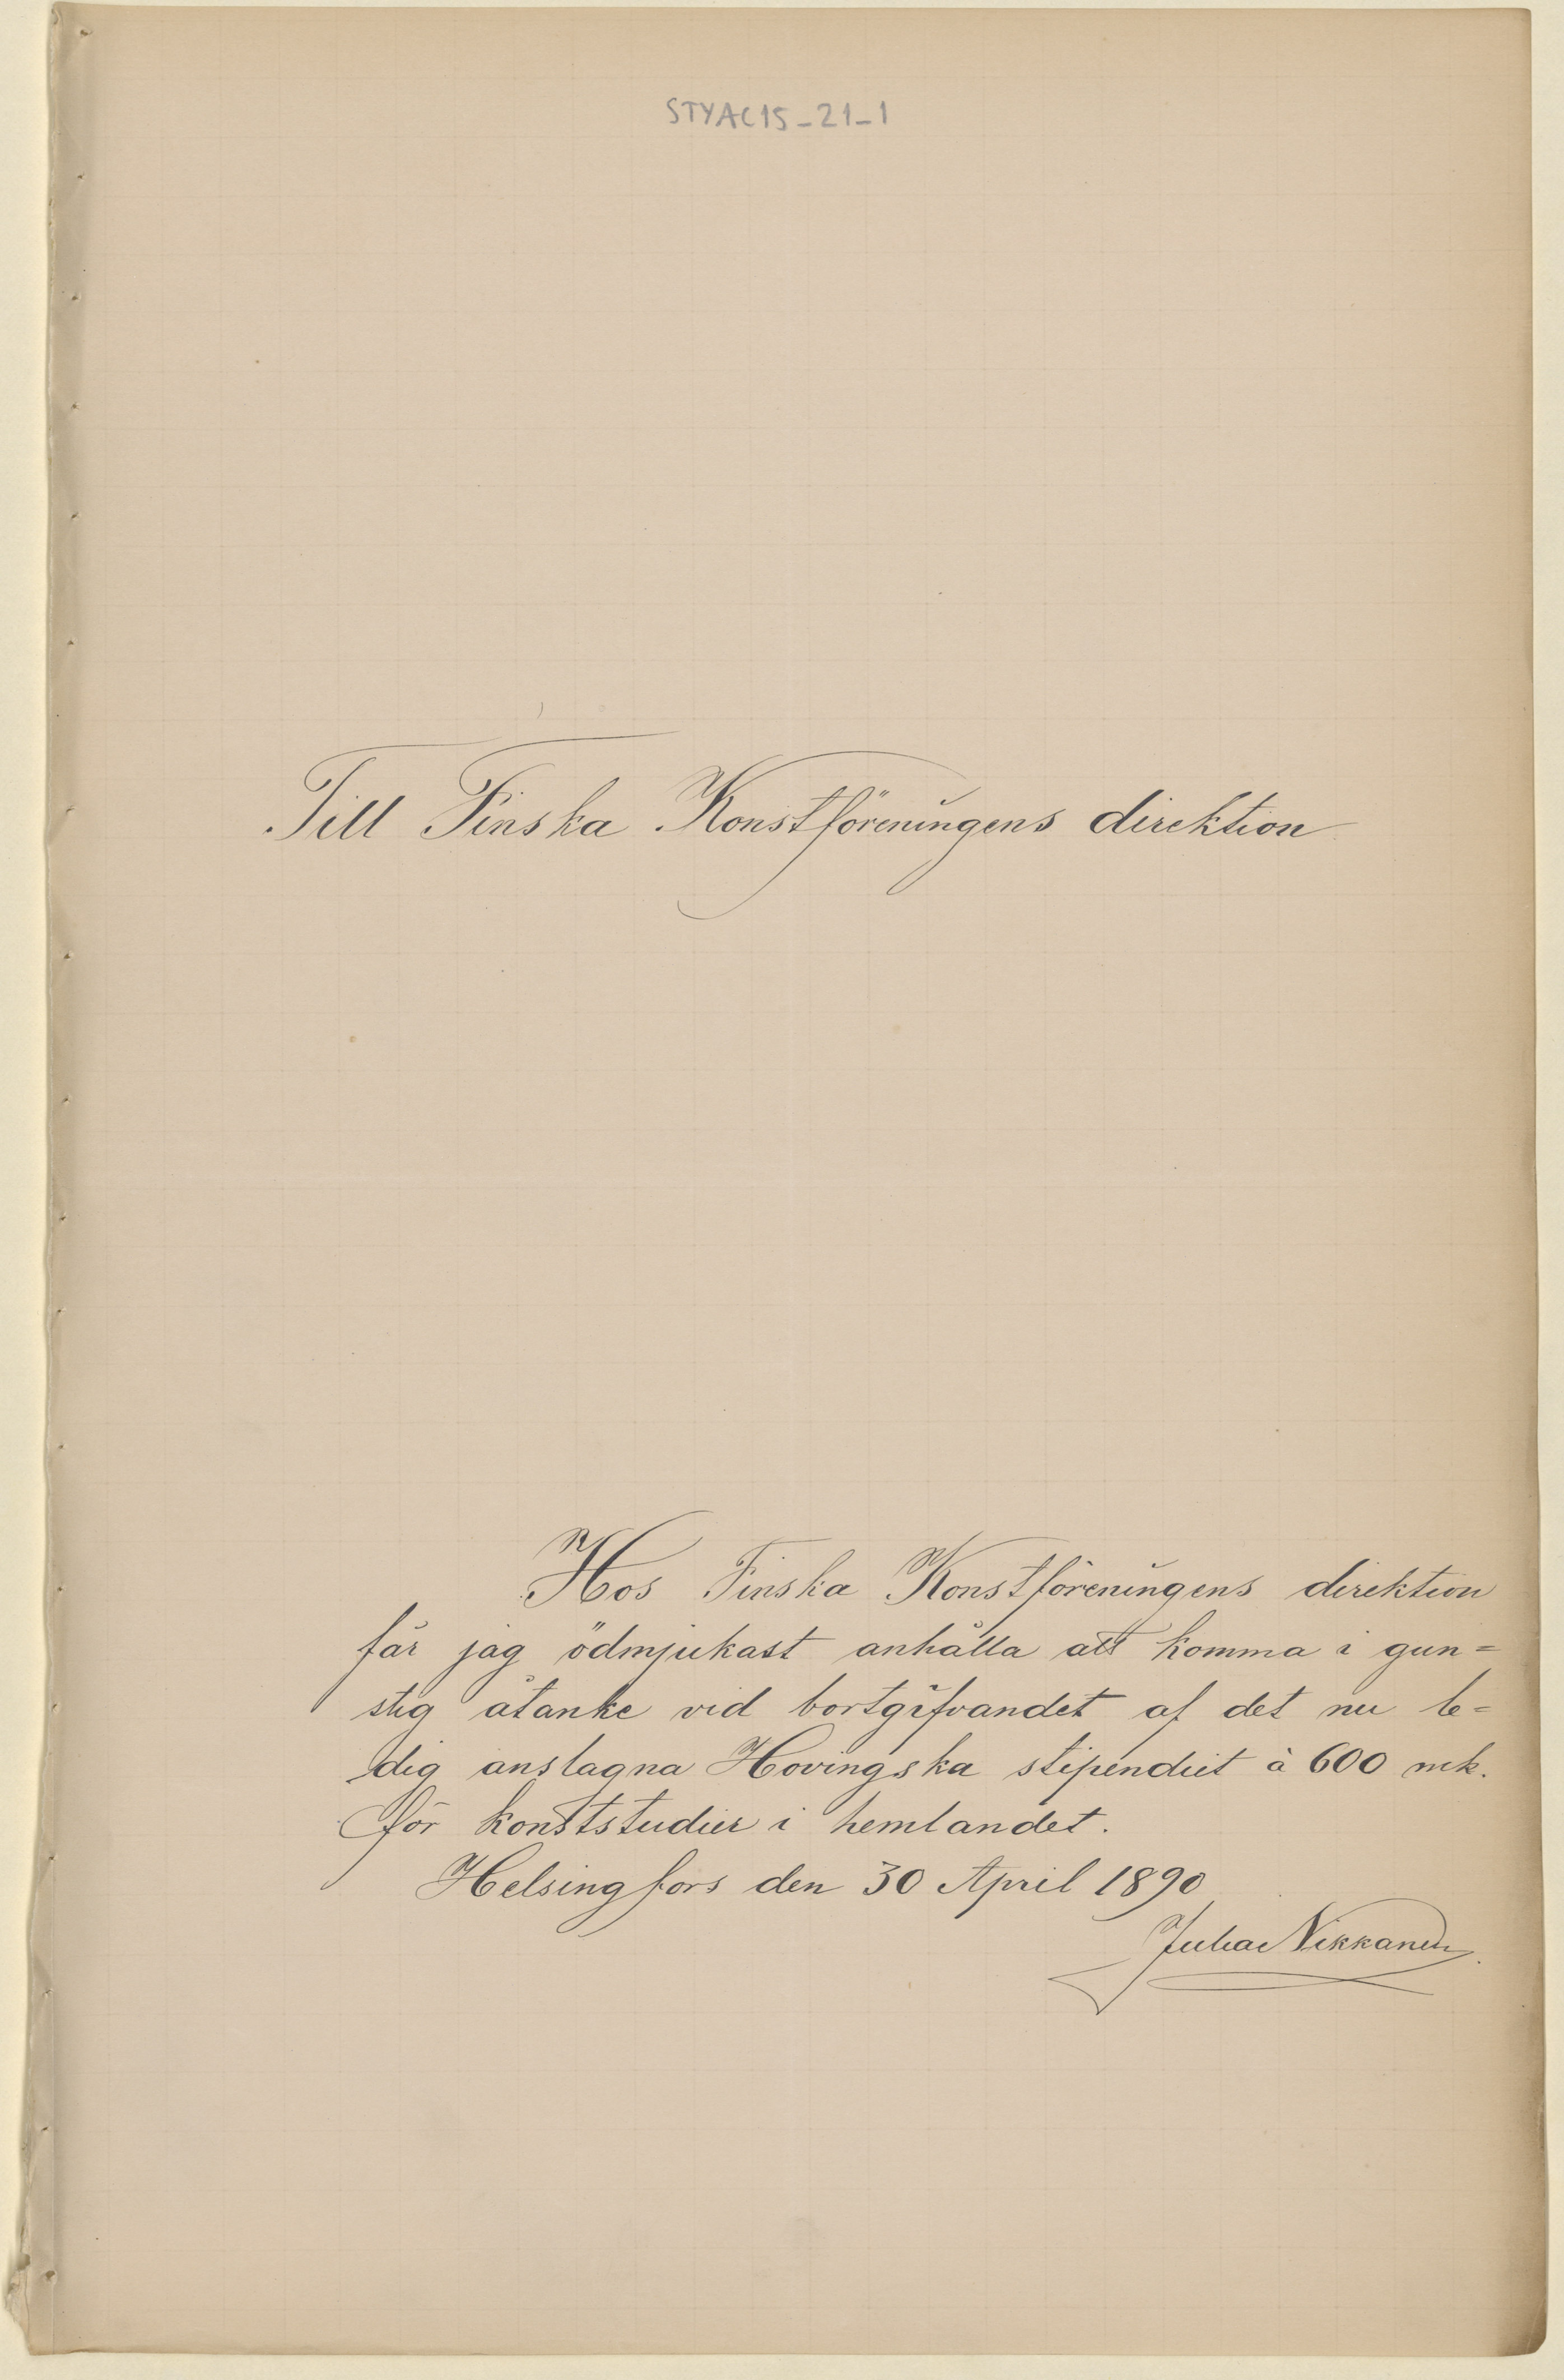 STYAC15_21_1
Till Finska Konstföreningens direktion
Hos Finska Konstföreningens direktion
får jag ödmjukast anhålla att komma i gun=
stig åtanke vid bortgifvandet af det nu le=
dig anslagna Hovingska stipendiet à 600 mk.
för konststudier i hemlandet.
Helsingfors den 30 April 1890
Nikkanen